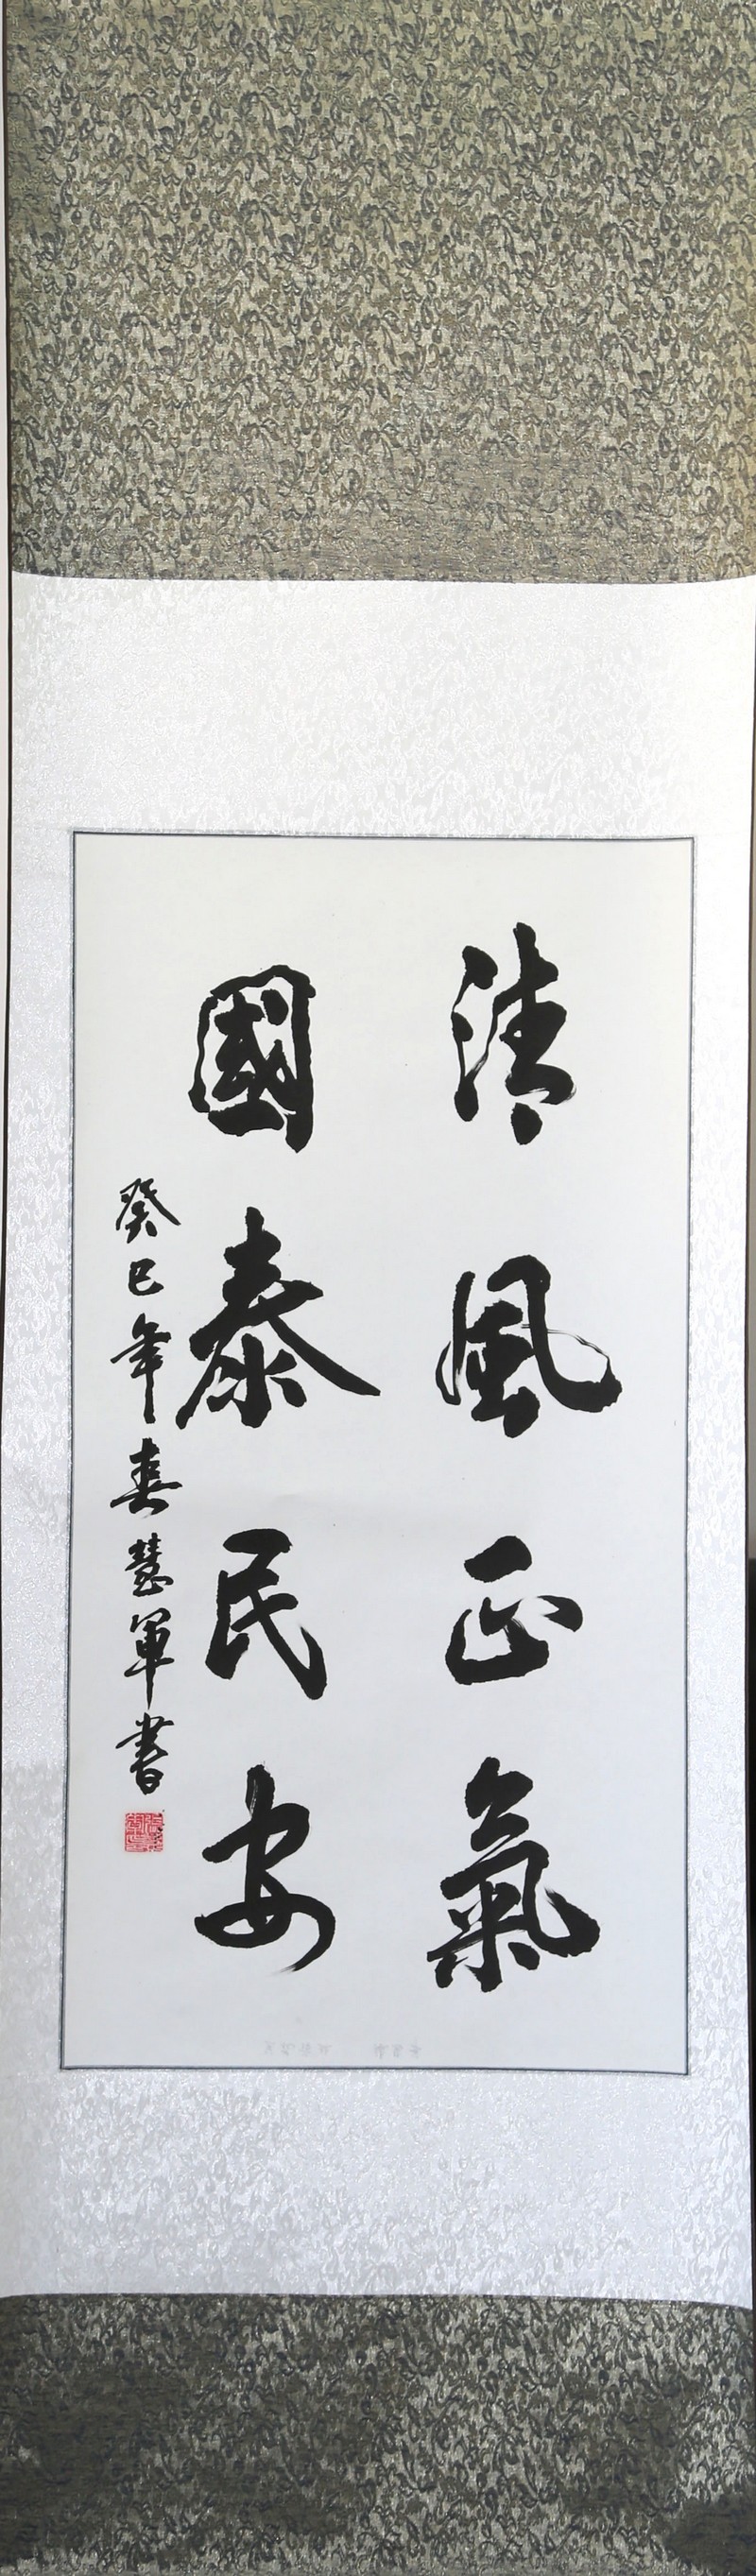 清風正氣
國泰民安
癸巳年春慧軍書